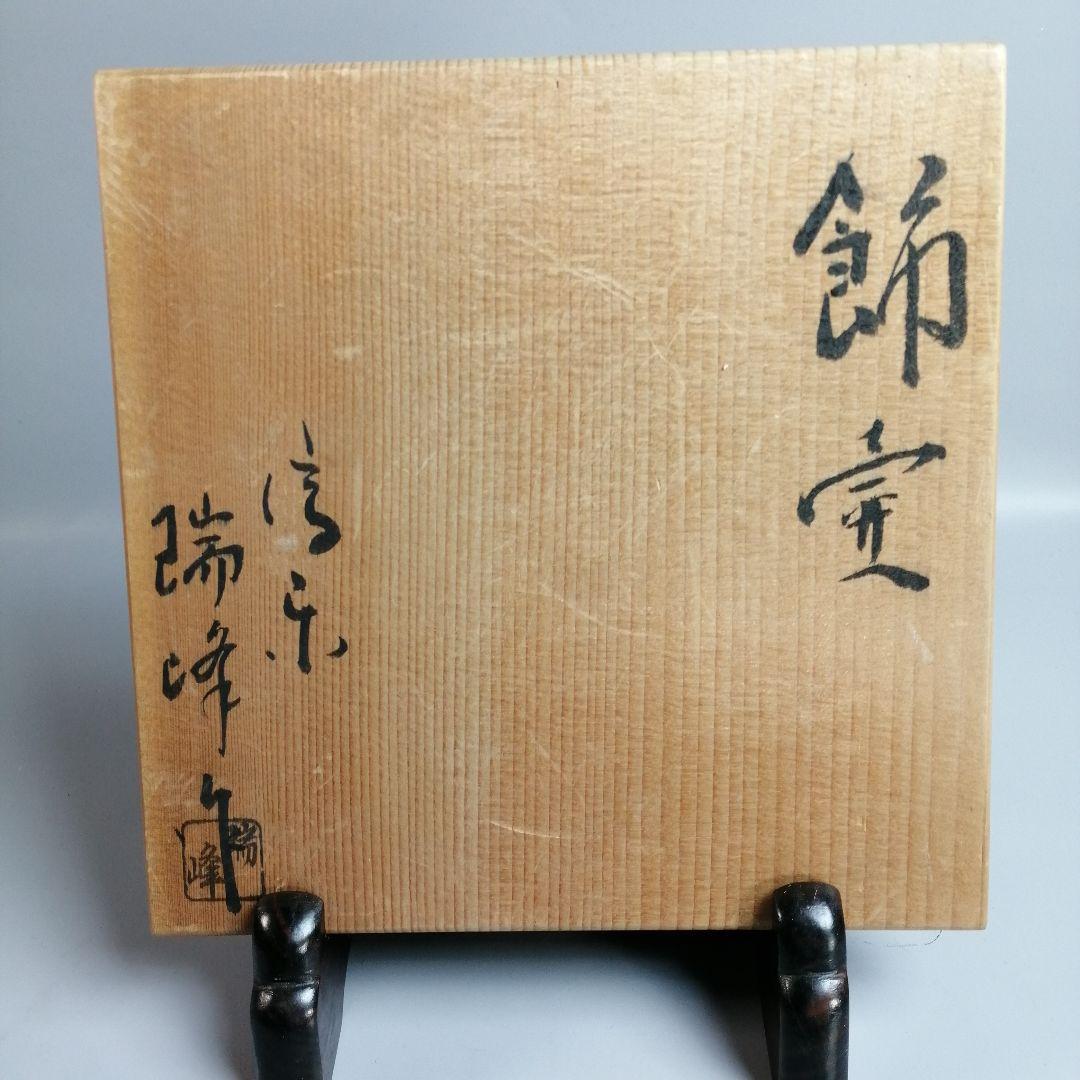 飾壷
信楽
瑞峰作
瑞峰